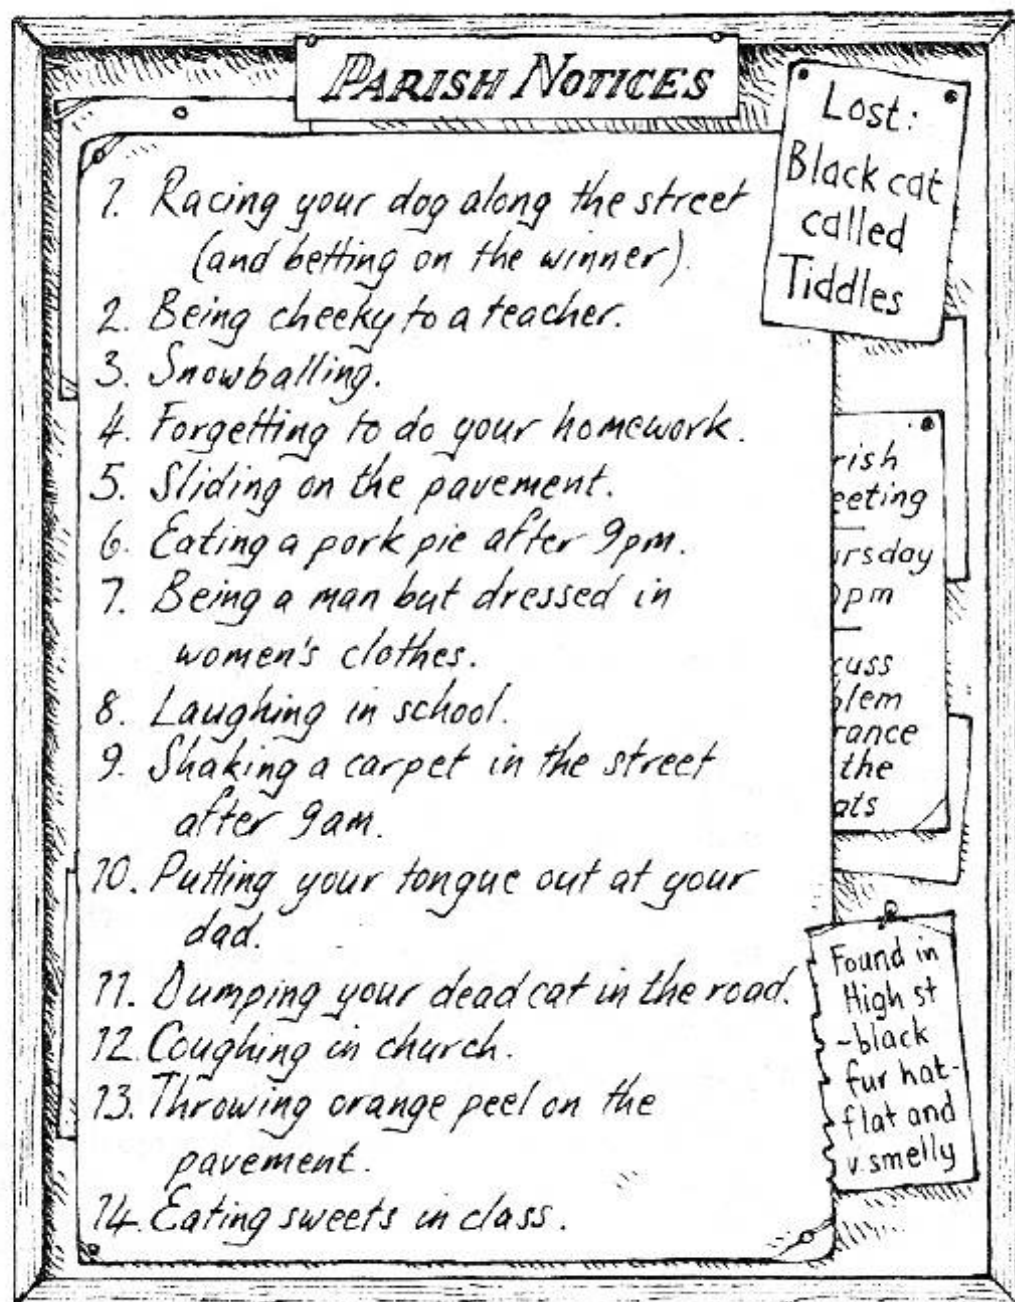 PARISH NOTICES
1. Racing your dog along the street
(and betting on the winner).
2. Being cheeky to a teacher.
3. Snowballing.
4. Forgetting to do your homework.
5. Sliding on the pavement.
6. Eating a pork pie after 9pm.
7. Being a man but dressed in
women's clothes.
8. Laughing in school.
9. Shaking a carpet in the street
after 9am.
10. Putting your tongue out at your
dad.
11. Dumping your dead cat in the road.
12. Coughing in church.
13. Throwing orange peel on the
pavement.
14. Eating sweets in class.
Lost:
Black cat
called
Tiddles
rish
eeting
ursday
pm
cuss
blem
rance
the
ats
Found in
High st
~black
fur hat-
flat and
v. smelly